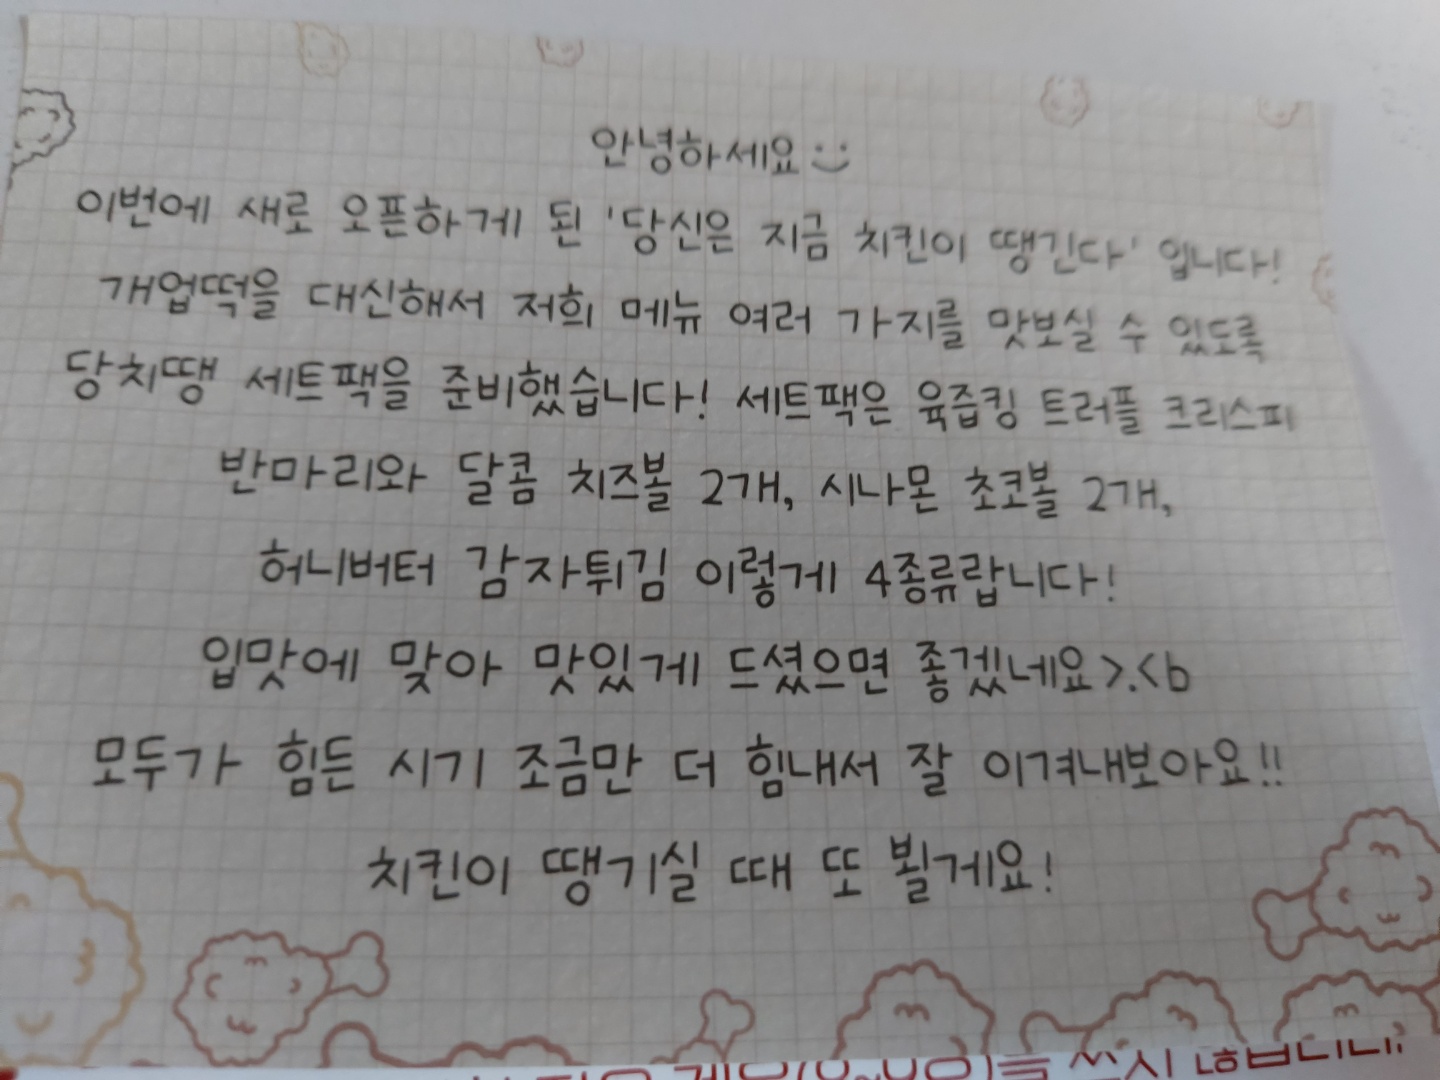 안녕하세요 :)
이번에 새로 오픈하게 된 '당신은 지금 치킨이 땡긴다' 입니다!
개업떡을 대신해서 저희 메뉴 여러 가지를 맛보실 수 있도록
당치땡 세트팩을 준비했습니다! 세트팩은 육즙킹 트러플 크리스피
반마리와 달콤 치즈볼 2개, 시나몬 초코볼 2개,
허니버터 감자튀김 이렇게 4종류랍니다!
입맛에 맞아 맛있게 드셨으면 좋겠네요>.<b
모두가 힘든 시기 조금만 더 힘내서 잘 이겨내보아요!!
치킨이 땡기실 때 또 뵐게요!